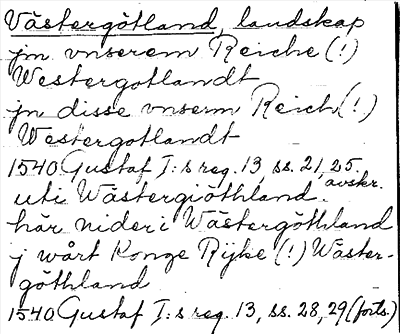 Västergötland, landskap
jn vnserem Reiche (!)
Westergotlandt
jn disse vnserm Reich (!)
Westergotlandt
1540 Gustaf I:s reg. 13, ss. 21, 25.
avskr.
uti Wästergiöthland.
här nider i Wästergöthland
j wårt Konge Rijke (!) Wäster-
göthland
1540 Gustaf I:s reg. 13, ss. 28, 29 (forts.)